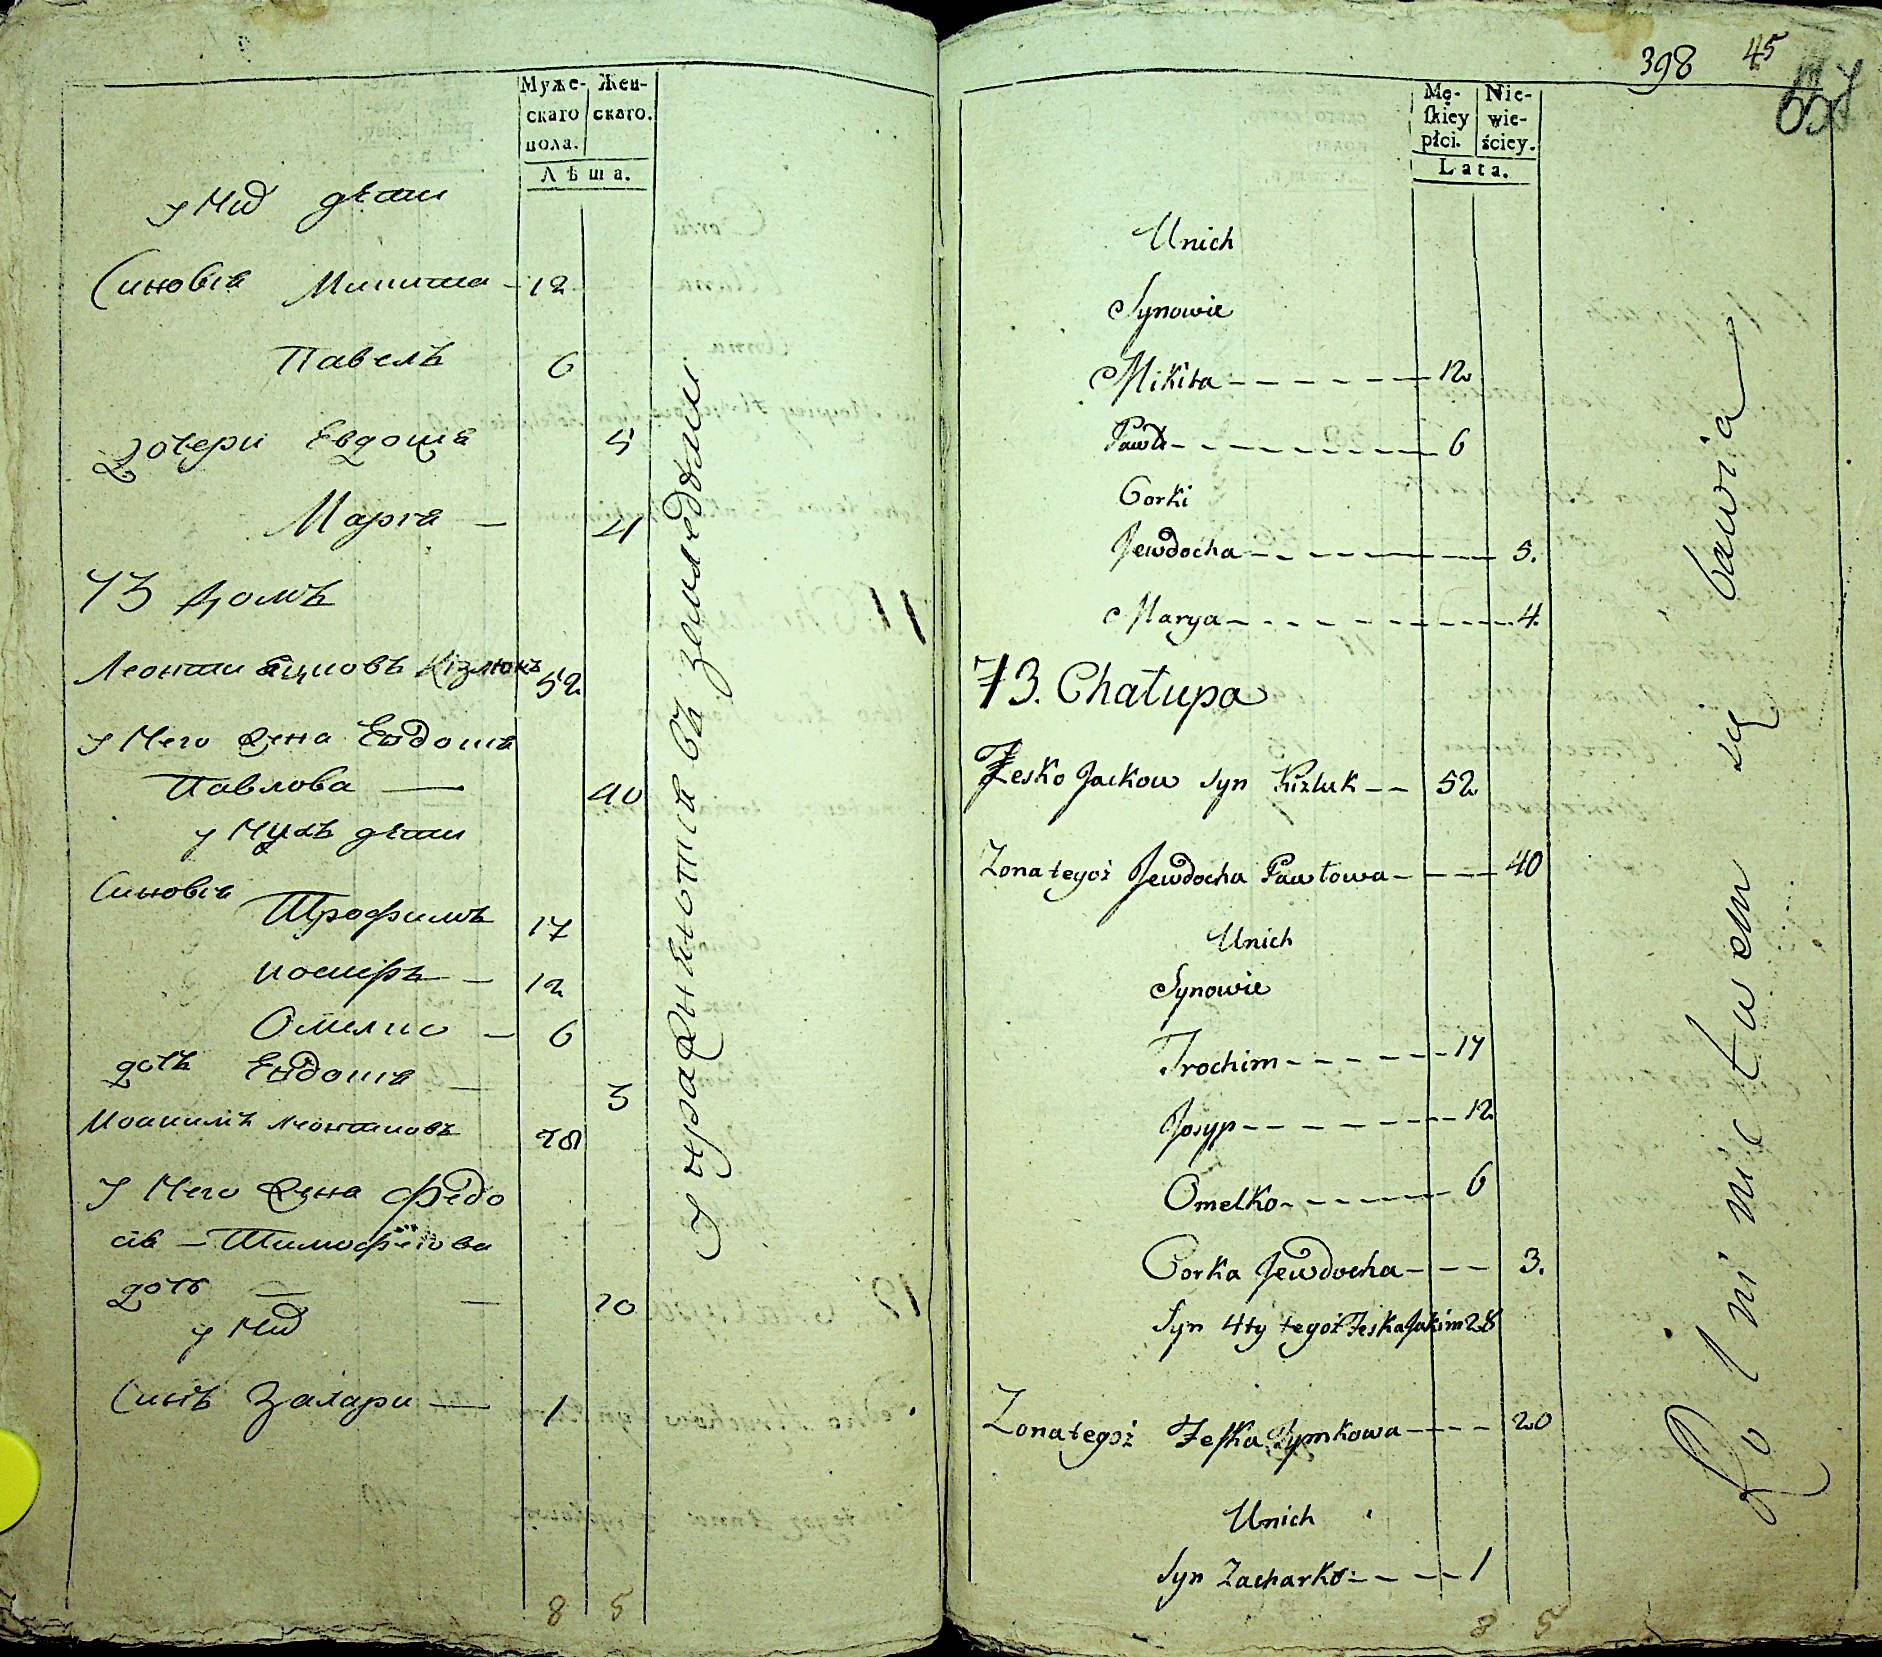 Муже-
скаго
пола.
Жен-
скаго.
Лѣта.
у Них дѣти
Синовія Микита - 12
Павелъ 6
Дочери Евдошя 5
Марія — 4
73 Домъ
Леонти Яцковъ Кізлюкъ 52
у Него Жена Евдошя
Павлова — 40
у Нихъ дѣти
Синовія
Трофимъ 17
Иосифъ — 12
Омелко — 6
дочь Евдошя — 3
Иоакимъ Леонтиовъ 28
У Него Жена Федо
сія — Тимофеева
дочь — — 20
у Них
Синъ Захари — 1
8 5
Упражняются въ земледѣліи
398 45
Mę-
skiey
płci.
Nie-
wie-
ściey.
Lata.
Unich
Synowie
Mikita - - - - - - 12
Paweł - - - - - - 6
Corki
Jewdocha - - - - - - 5.
Marya - - - - - - 4.
73. Chałupa
Fesko Jackow syn Kizluk - - 52
Zona tegoż Jewdocha Pawłowa - - - - 40
Unich
Synowie
Trochim - - - - - - 17
Josyp - - - - - - 12
Omelko - - - - - - 6
Corka Jewdocha - - - - 3.
Syn 4ty tegoż Feska Jakim 28
Zona tegoż Feśka Tymkowa - - - - 20
Unich
Syn Zacharko - - - - 1
8 5
Rolnictwem się bawia